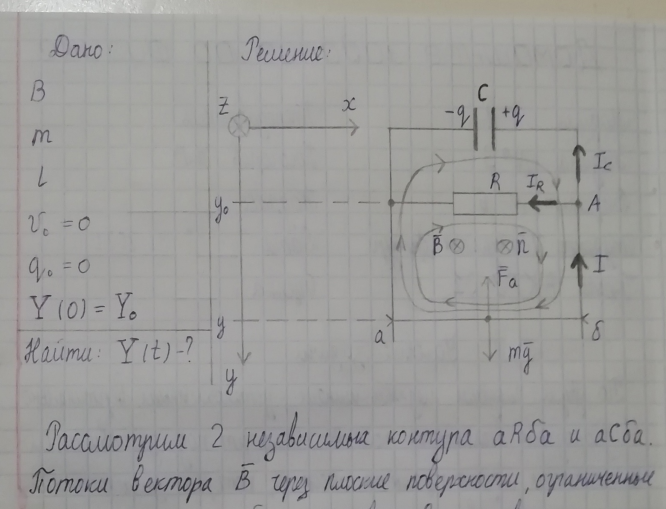 Дано: Решение:
B
m
l
v₀ = 0
q₀ = 0
Y(0) = Y₀
Найти: Y(t) - ?
Z x
y₀
y
y
C
-q +q
I_c
R I_R A
B̄ n̄
I
F̄a
a б
mḡ
Рассмотрим 2 независимых контура aRбa и aCбa.
Потоки вектора B̄ через плоские поверхности, ограниченные